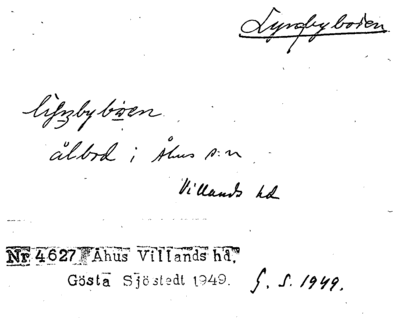 Lyngbyboden
ålbod i Åhus s:n
Villands hd
Nr 4627 Åhus Villands hd.
Gösta Sjöstedt 1949. G. S. 1949.